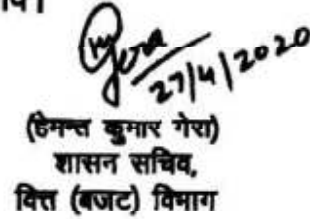 27/4/2020
(हेमन्त कुमार गेरा)
शासन सचिव,
वित्त (बजट) विभाग